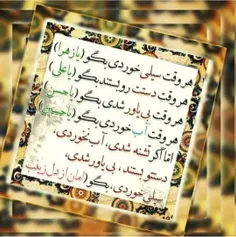 هر وقت سیلی خوردی،بگو(یازهرا)
هر وقت دستت رو بستند،بگو(یاعلی)
هر وقت بی یاور شدی،بگو(یاحسن)
هر وقت آب خوردی،بگو(یاحسین)
اما اگر تشنه شدی، آب نخوردی،
دستتو بستند، بی یاور شدی،
سیلی خوردی، بگو(امان از دل زینب)